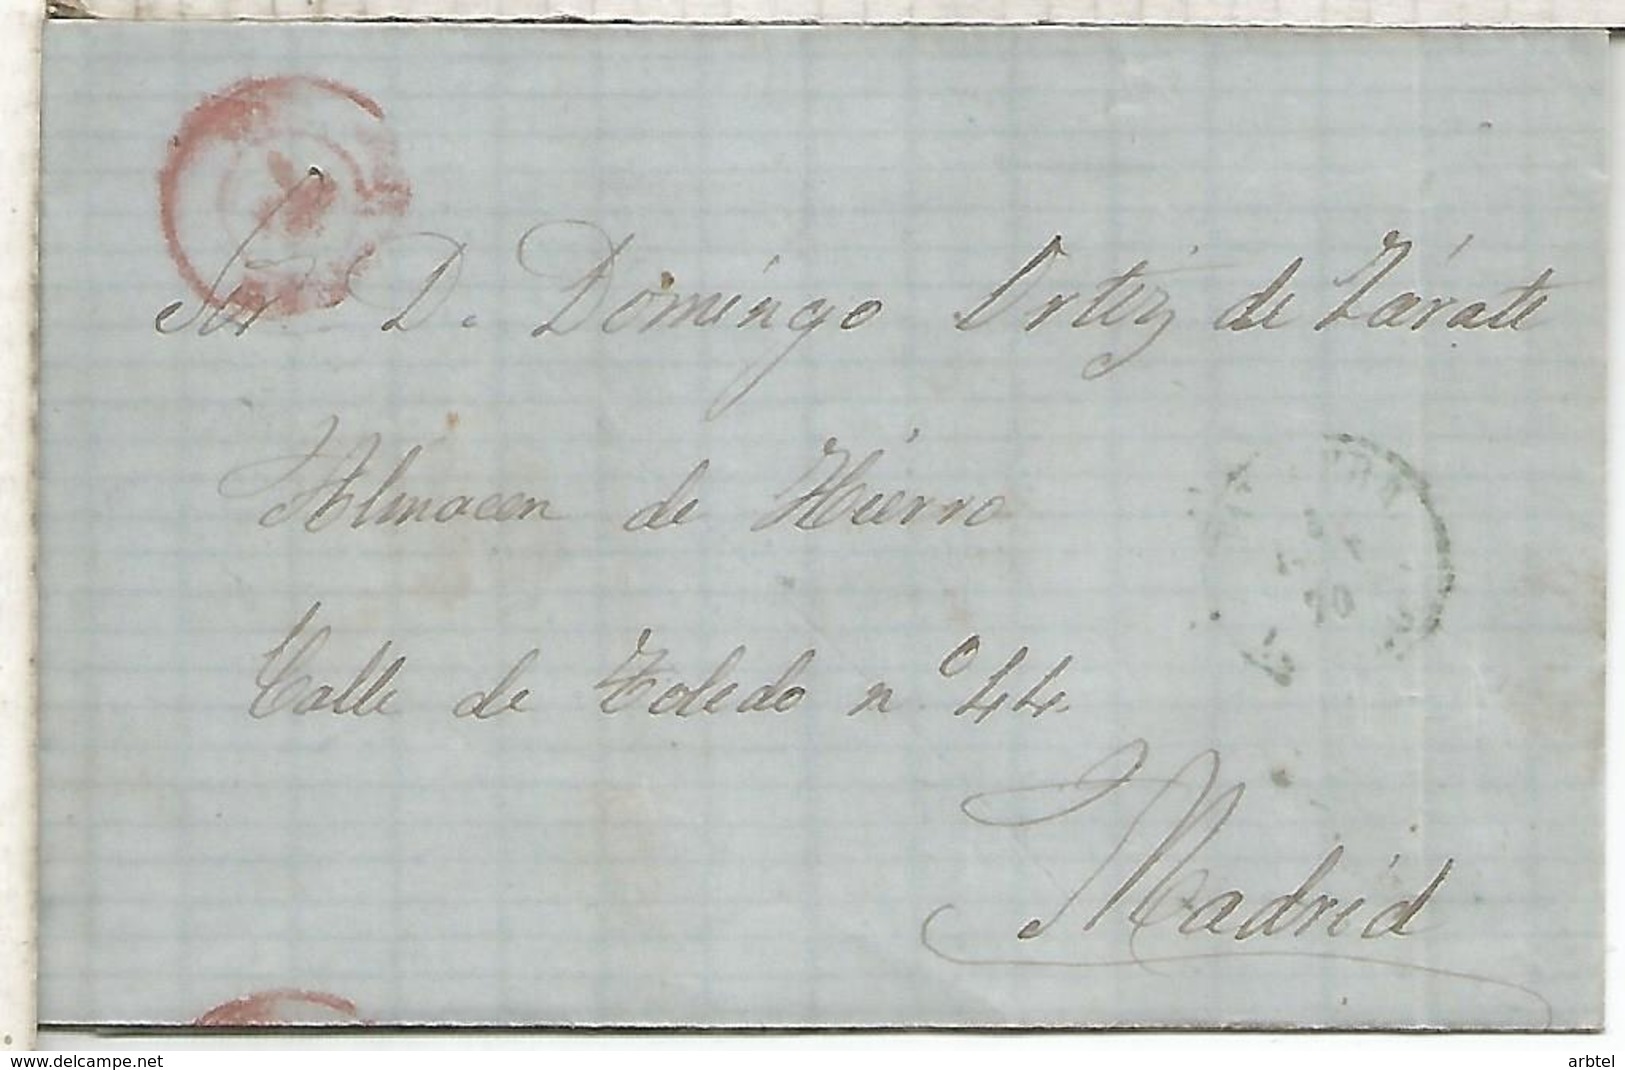 Sr. D. Domíngo Ortiz de Zárate
Almacen de Hierro
Calle de Toledo nº 44.
Madrid
delcampe.net
arbtel